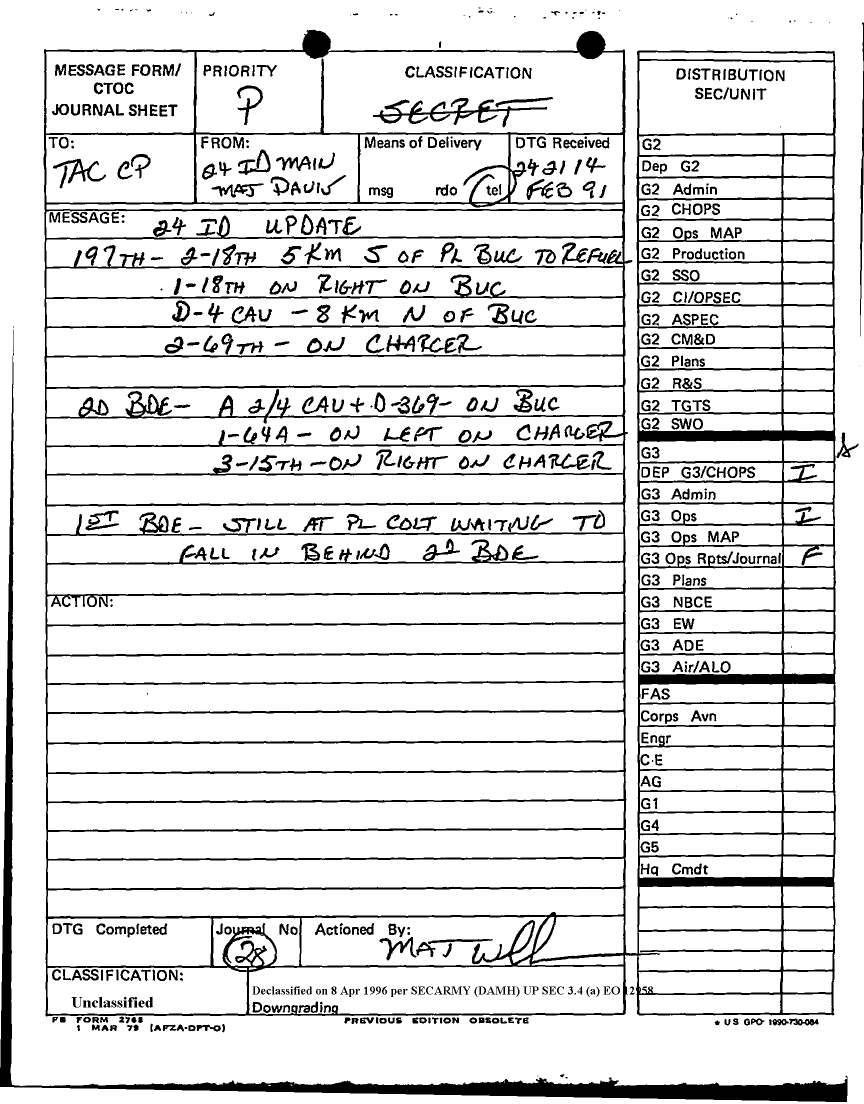 MESSAGE FORM/
CTOC
JOURNAL SHEET
PRIORITY
P
CLASSIFICATION
SECRET
TO:
TAC CP
FROM:
24 ID MAIN
MAJ DAVIS
Means of Delivery
msg rdo tel
DTG Received
242114
FEB 91
MESSAGE: 24 ID UPDATE
197TH - 2-18TH 5 KM S OF PL BUC TO REFUEL
1-18TH ON RIGHT ON BUC
D-4 CAV - 8 KM N OF BUC
2-69TH - ON CHARGER
2D BDE - A 2/4 CAV + D-369 - ON BUC
1-64A - ON LEFT ON CHARGER
3-15TH - ON RIGHT ON CHARGER
1ST BDE - STILL AT PL COLT WAITING TO
FALL IN BEHIND 2D BDE
ACTION:
DTG Completed
Journal No
28
Actioned By:
MAJ
CLASSIFICATION:
Unclassified
Declassified on 8 Apr 1996 per SECARMY (DAMH) UP SEC 3.4 (a) EO 12958
Downgrading
FB FORM 2768
1 MAR 79 (AFZA-DPT-O)
PREVIOUS EDITION OBSOLETE
DISTRIBUTION
SEC/UNIT
G2
Dep G2
G2 Admin
G2 CHOPS
G2 Ops MAP
G2 Production
G2 SSO
G2 CI/OPSEC
G2 ASPEC
G2 CM&D
G2 Plans
G2 R&S
G2 TGTS
G2 SWO
G3
DEP G3/CHOPS I
G3 Admin
G3 Ops I
G3 Ops MAP
G3 Ops Rpts/Journal F
G3 Plans
G3 NBCE
G3 EW
G3 ADE
G3 Air/ALO
FAS
Corps Avn
Engr
C-E
AG
G1
G4
G5
Hq Cmdt
* US GPO: 1990-730-084